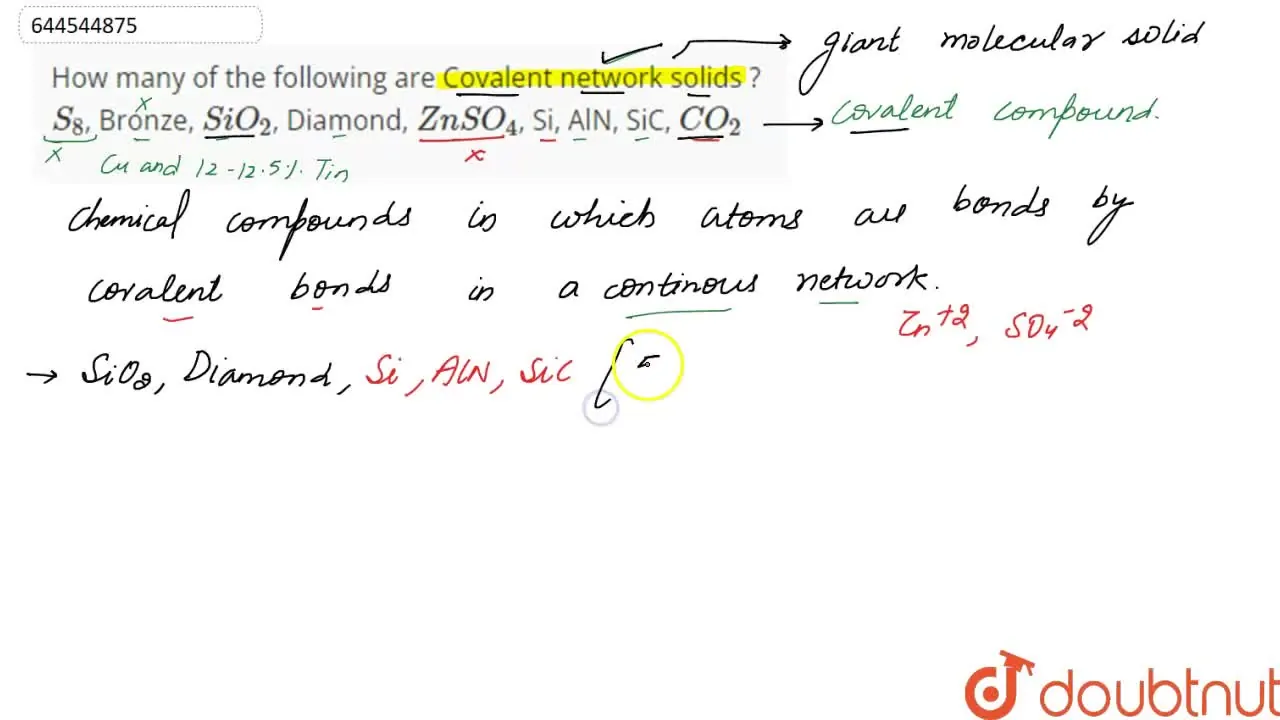 644544875
giant molecular solid
How many of the following are Covalent network solids ?
x
S8, Bronze, SiO2, Diamond, ZnSO4, Si, AlN, SiC, CO2 → covalent compound.
x Cu and 12-12.5%. Tin x
chemical compounds in which atoms are bonds by
covalent bonds in a continous network.
Zn+2, SO4-2
→ SiO2, Diamond, Si, AlN, SiC [ 5
doubtnut